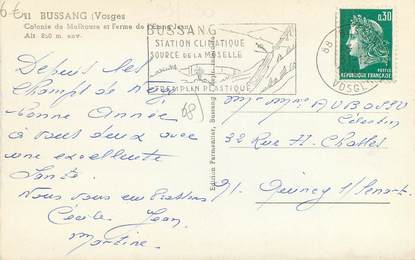 6€
11 BUSSANG (Vosges
Colonie de Mulhouse et Ferme de l'Etang Jean
Alt 850 m. env.
BUSSANG
STATION CLIMATIQUE
SOURCE DE LA MOSELLE
TREMPLIN PLASTIQUE
88
VOSGES
0,30
POSTES
REPUBLIQUE FRANÇAISE
68
Depuis les
champs de neige
bonne Année
à vous deux avec
une excellente
Santé.
Nous vous embrassons
Cécile Jean
Martine
Edition Parmentier, Bussang
Mr Mme AUBOUSSU
Célestin
32 Rue A. Chasles
91. Quincy s/Senart